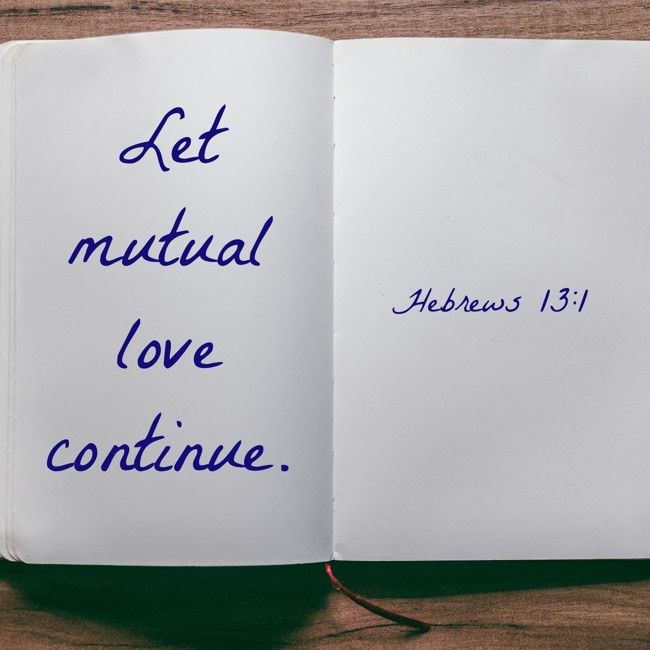 Let
mutual
love
continue.
Hebrews 13:1